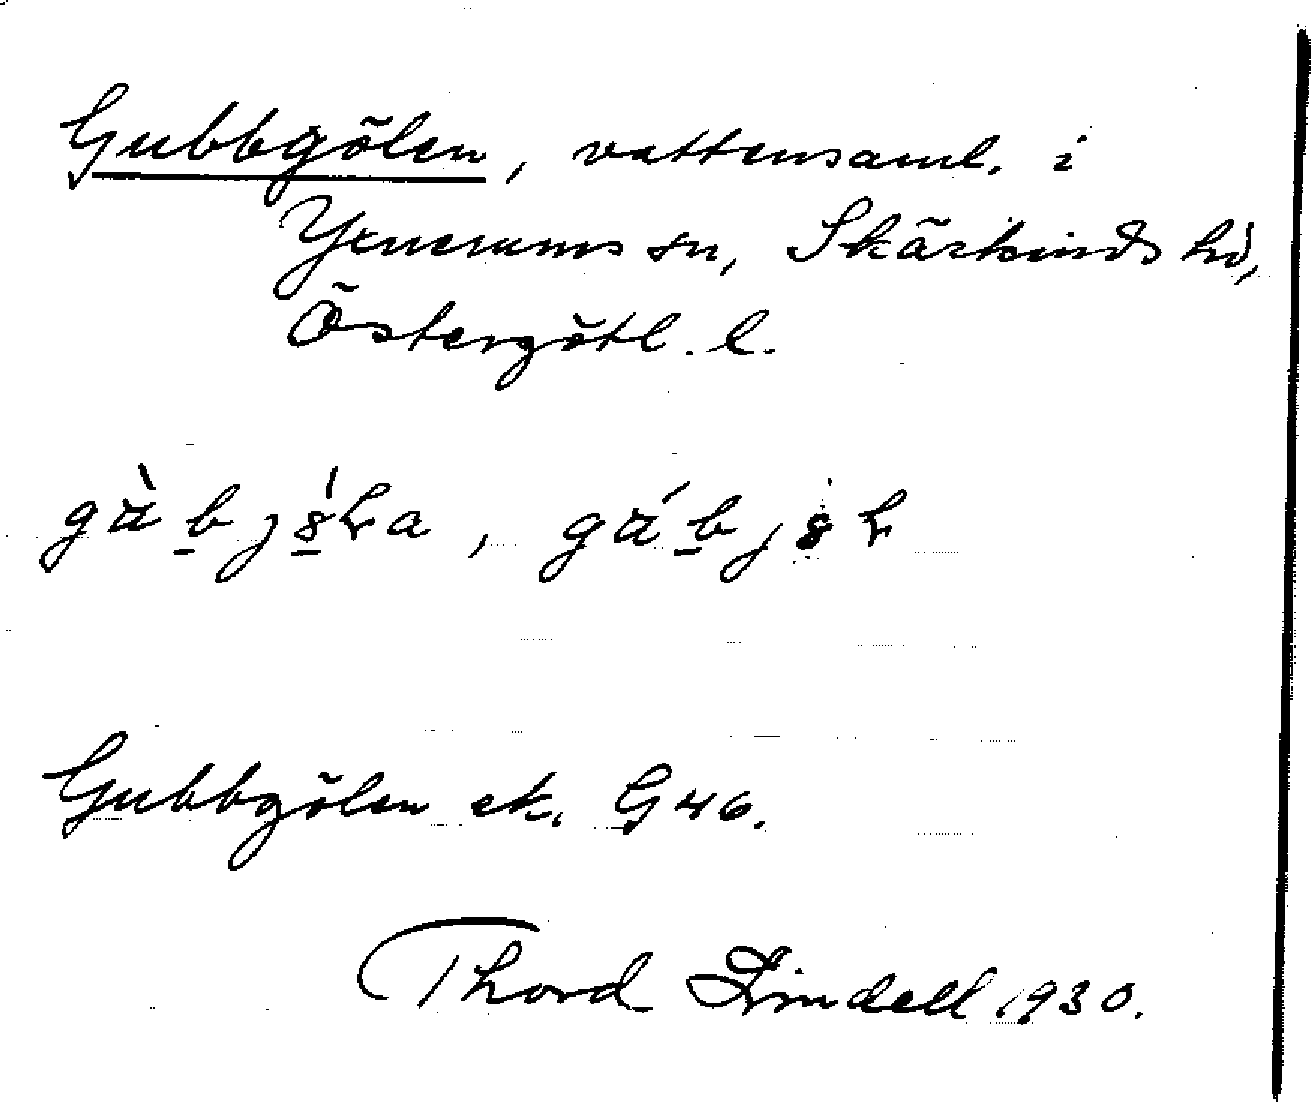 Gubbgölen, vattensaml. i
Yxnerums sn, Skärkinds hd,
Östergötl. l.
Gubbgölen ek. G46.
Thord Lindell 1930.